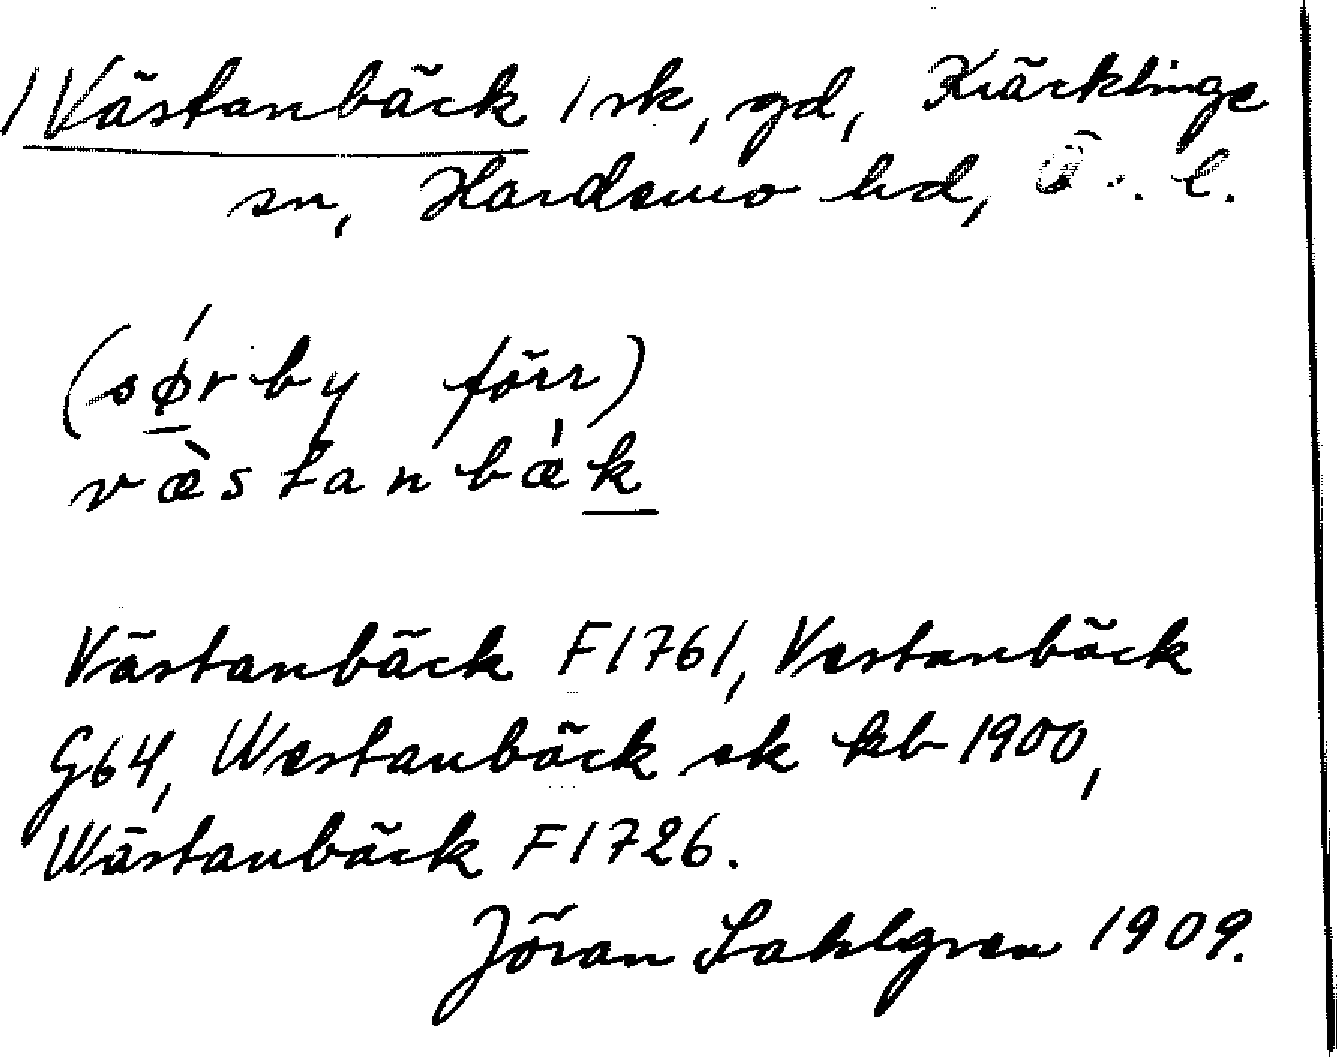 /Västanbäck / sk, gd, Kräcklinge
sn, Hardemo hd, Ö. l.
(sǿrby förr)
væ̀stanbǽk
Västanbäck F1761, Vestanbäck
G64, Westanbäck sk kb 1900,
Wästanbäck F1726.
Jöran Sahlgren 1909.